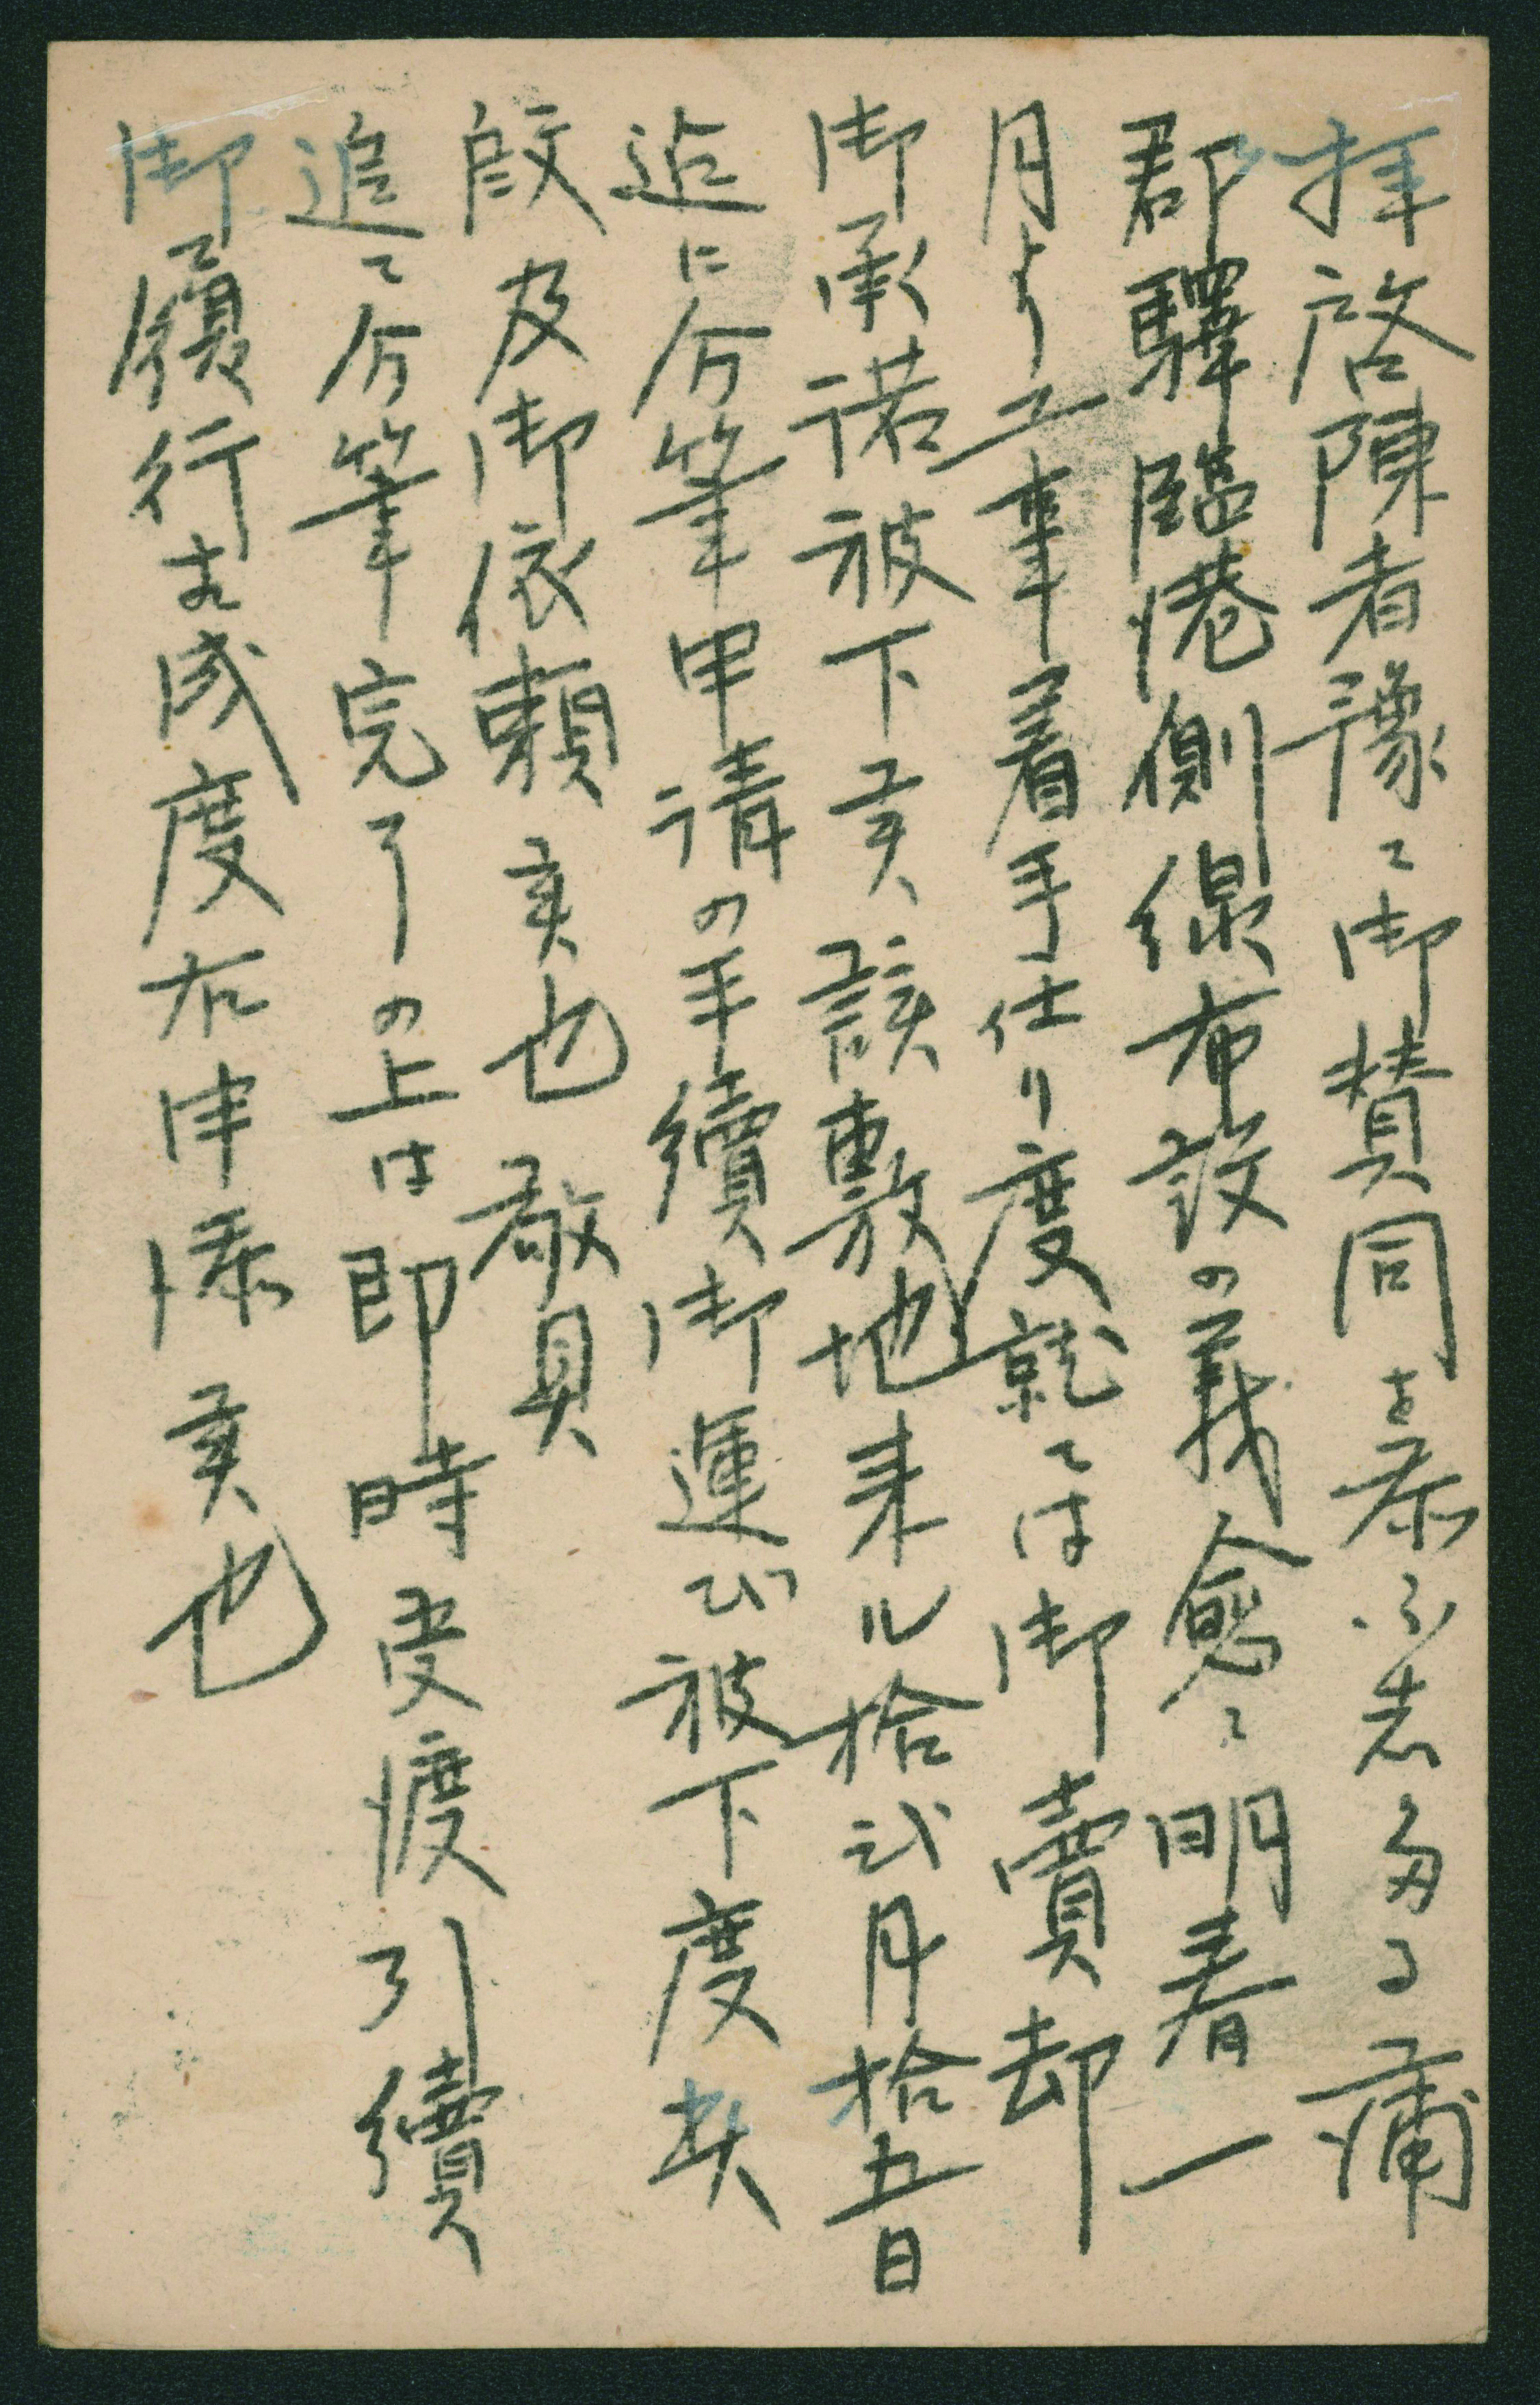 拝啓陳者豫て御賛同を忝ふ志多る蒲
郡驛臨港側線布設の義愈々明春一
月より工事着手仕り度就ては御賣却
御承諾被下候該敷地来ル拾弐月拾五日
迄に分筆申請の手續御運び被下度此
段及御依頼候也 敬具
追て分筆完了の上は即時受渡引續
御履行相成度右申添候也